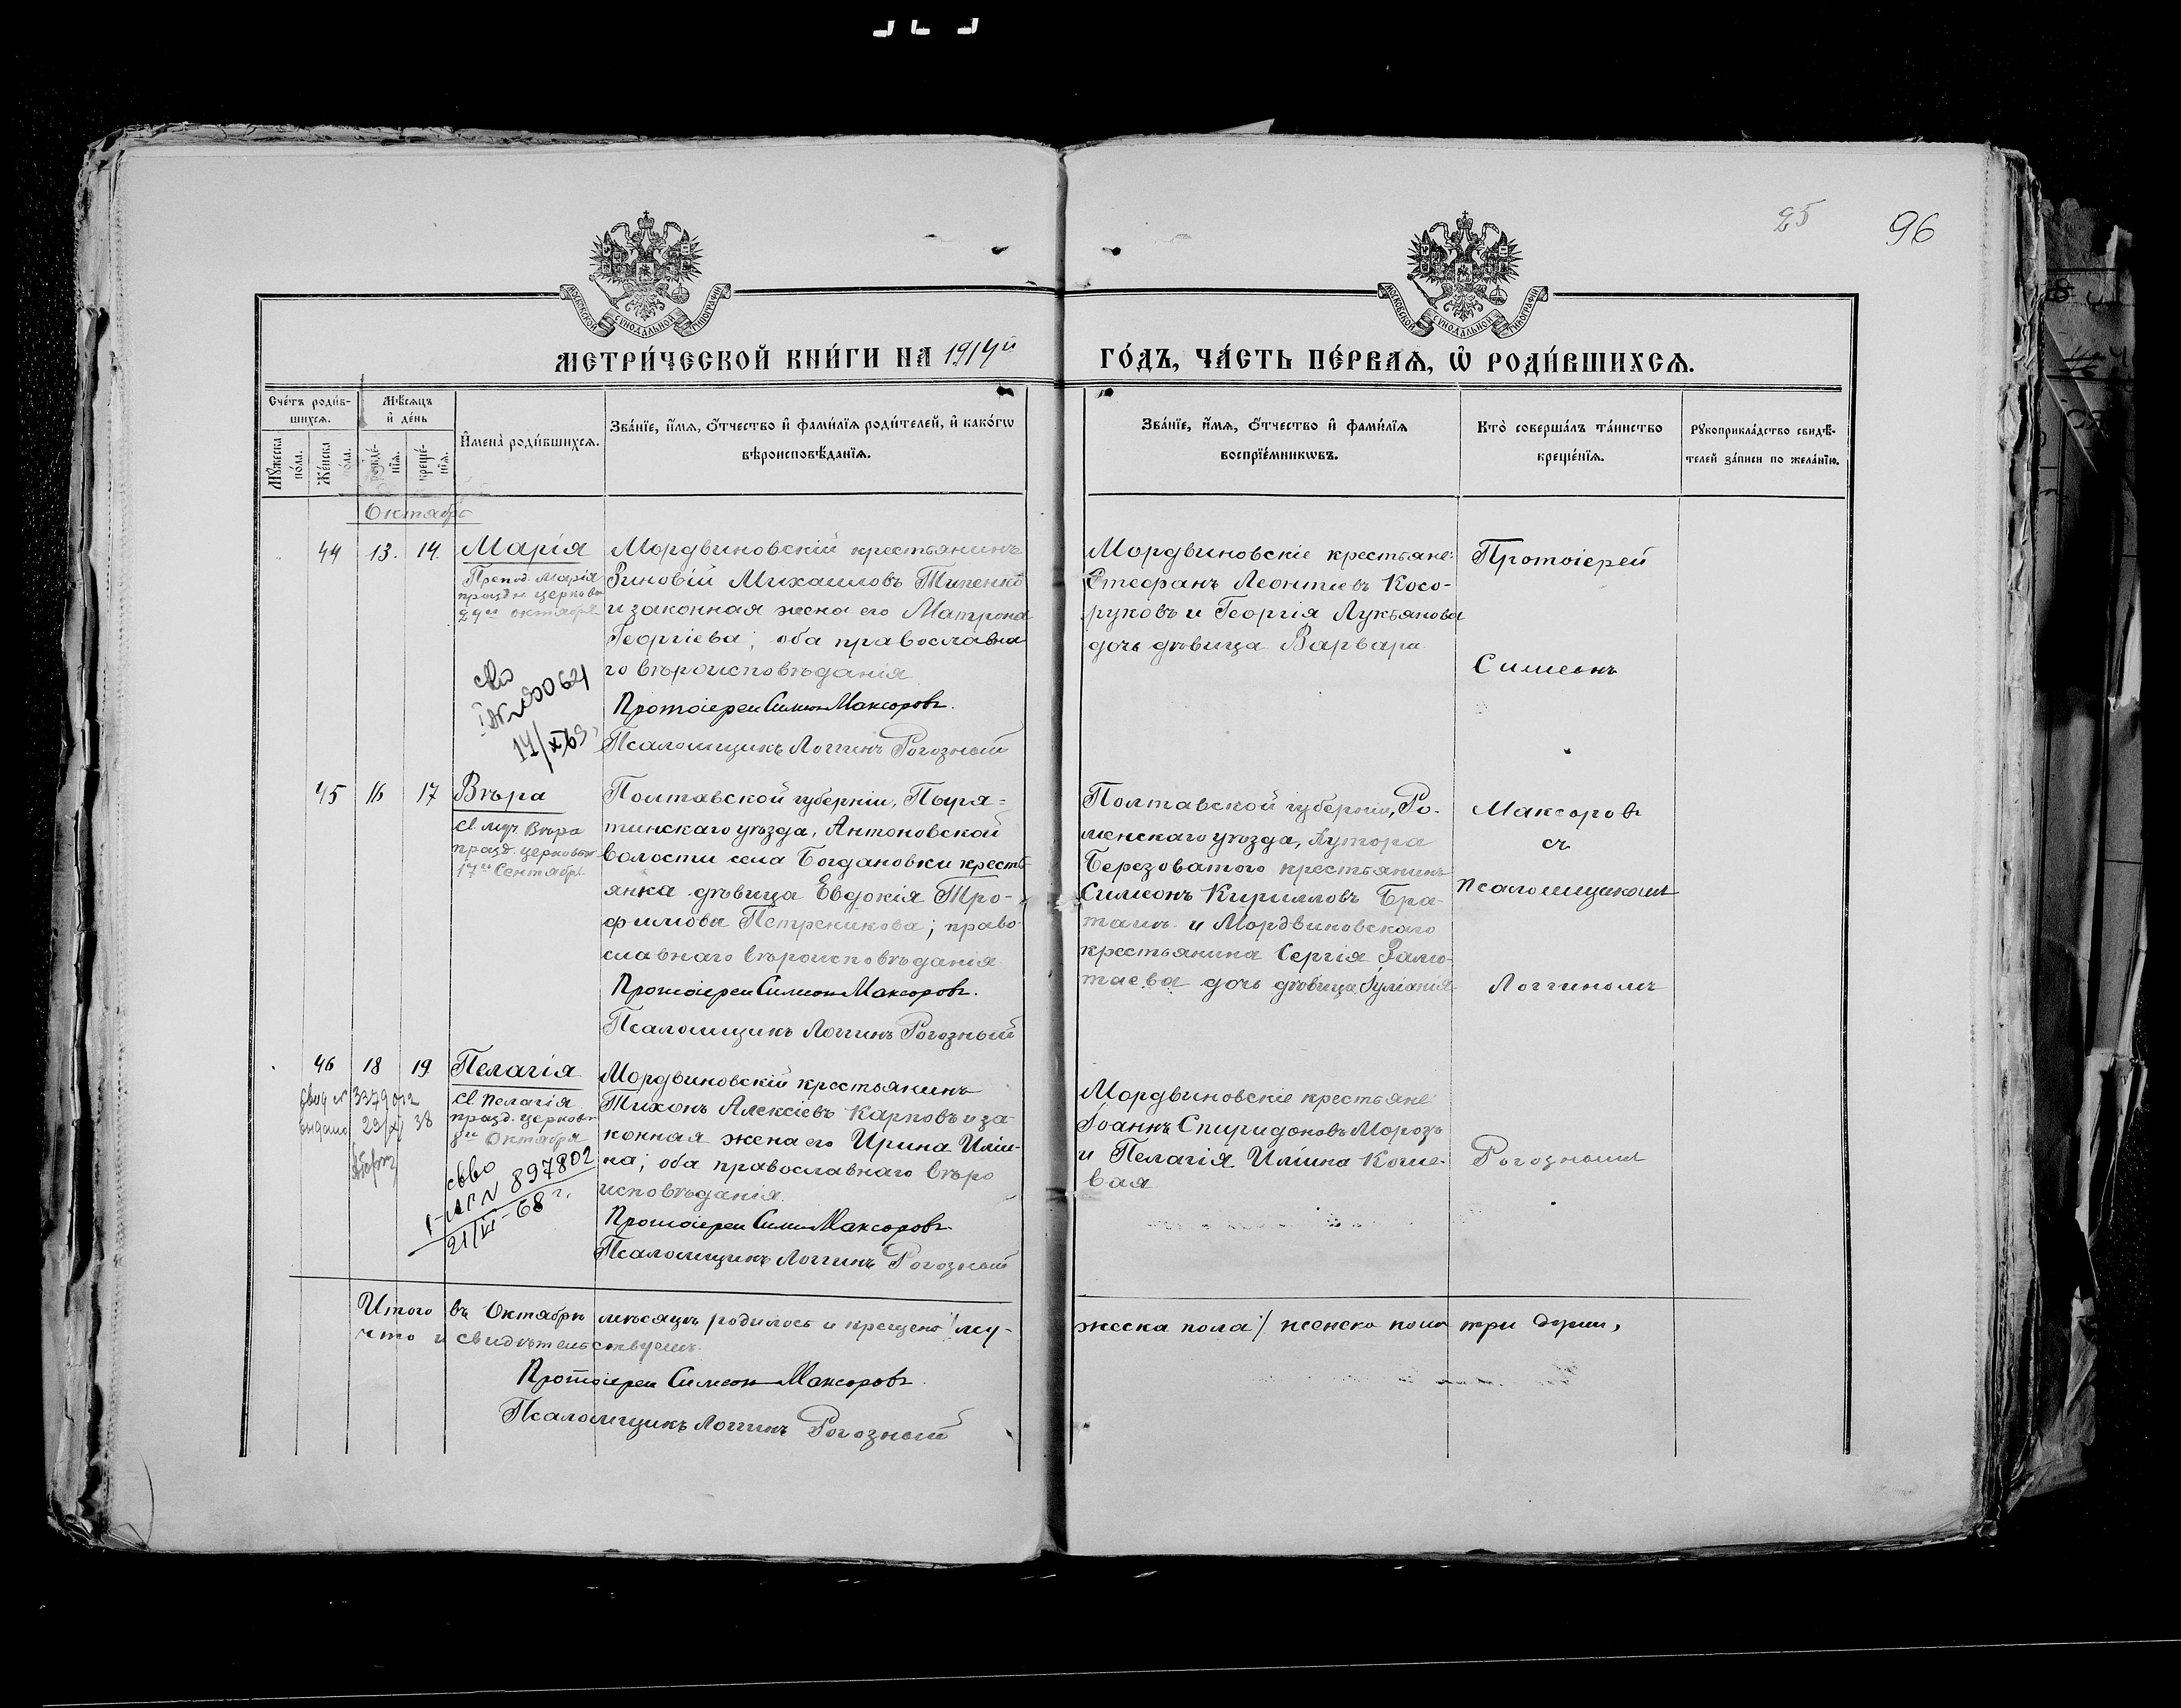 25
96
МОСКОВСКОЙ СѴНОДАЛЬНОЙ ТИПОГРАФІИ
МОСКОВСКОЙ СѴНОДАЛЬНОЙ ТИПОГРАФІИ
МЕТРИ́ЧЕСКОЙ КНИ́ГИ НА 1914й
ГО́ДЪ, ЧА́СТЬ ПЕ́РВАѦ, Ѽ РОДИ́ВШИХСѦ.
Сче́тъ роди́в-
шихсѧ.
Мꙋжеска
по́ла.
Же́нска
по́ла.
Мѣ́сѧцъ
и҆ де́нь
рожде́-
нїѧ.
креще́-
нїѧ.
И҆мена̀ роди́вшихсѧ.
Зва́нїе, и҆́мѧ, ѻ҆́тчество и҆ фами́лїѧ роди́телей, и҆ како́гѡ
вѣроисповѣ́данїѧ.
Зва́нїе, и҆́мѧ, ѻ҆́тчество и҆ фами́лїѧ
воспрїе́мникѡвъ.
Кто̀ соверша́лъ та́инство
креще́нїѧ.
Рꙋкоприкла́дство свидѣ́-
телей за́писи по жела́нїю.
Октябрь
44 13. 14. Марія
Препод. Марія
празд. церковью
29го октября
сво
I № 800621
14/XI 69
Мордвиновскій крестьянинъ
Зиновій Михаиловъ Типенко
и законная жена его Матрона
Георгіева; оба православна
го вѣроисповѣданія
Протоіерей Симеон Максоровъ.
Псаломщикъ Логгинъ Рогозный
Мордвиновскіе крестьяне:
Стефанъ Леонтіевъ Косо-
руковъ и Георгія Лукьянова
дочь дѣвица Варвара
Протоіерей
Симеонъ
45 16 17 Вѣра
Св. муч. Вѣра
празд. церковью
17го Сентября
Полтавской губерніи, Пыря-
тинскаго уѣзда, Антоновской
волости села Богдановки кресть-
янка дѣвица Евдокія Тро-
фимова Петреникова; право-
славнаго вѣроисповѣданія
Протоіерей Симеон Максоровъ.
Псаломщикъ Логгинъ Рогозный
Полтавской губерніи, Ро-
менскаго уѣзда, хутора
Березоватого крестьянинъ
Симеонъ Кирилловъ Бра-
ташъ и Мордвиновскаго
крестьянина Сергія Замо-
таева дочь дѣвица Іуліанія
Максоровъ
съ
псаломщикомъ
Логгиномъ
46 18 19 Пелагія
Св. Пелагія
празд. церковью
8го Октября
свид № 3379
выдано 29/XI 38
свво
I-ЖГ N 897802
21/VI-68 г.
Мордвиновскій крестьянинъ
Тихонъ Алексіевъ Карповъ и за-
конная жена его Ирина Иліи-
на; оба православнаго вѣро
исповѣданія.
Протоіерей Симеон Максоровъ
Псаломщикъ Логгинъ Рогозный
Мордвиновскіе крестьяне:
Іоаннъ Спиридоновъ Морозъ
и Пелагія Иліина Коше-
вая
Рогознымъ
Итого въ Октябрѣ мѣсяцѣ родилось и крещено му-
жеска пола / женска пола три души,
что и свидѣтельствуемъ.
Протоіерей Симеон Максоровъ.
Псаломщикъ Логгинъ Рогозный